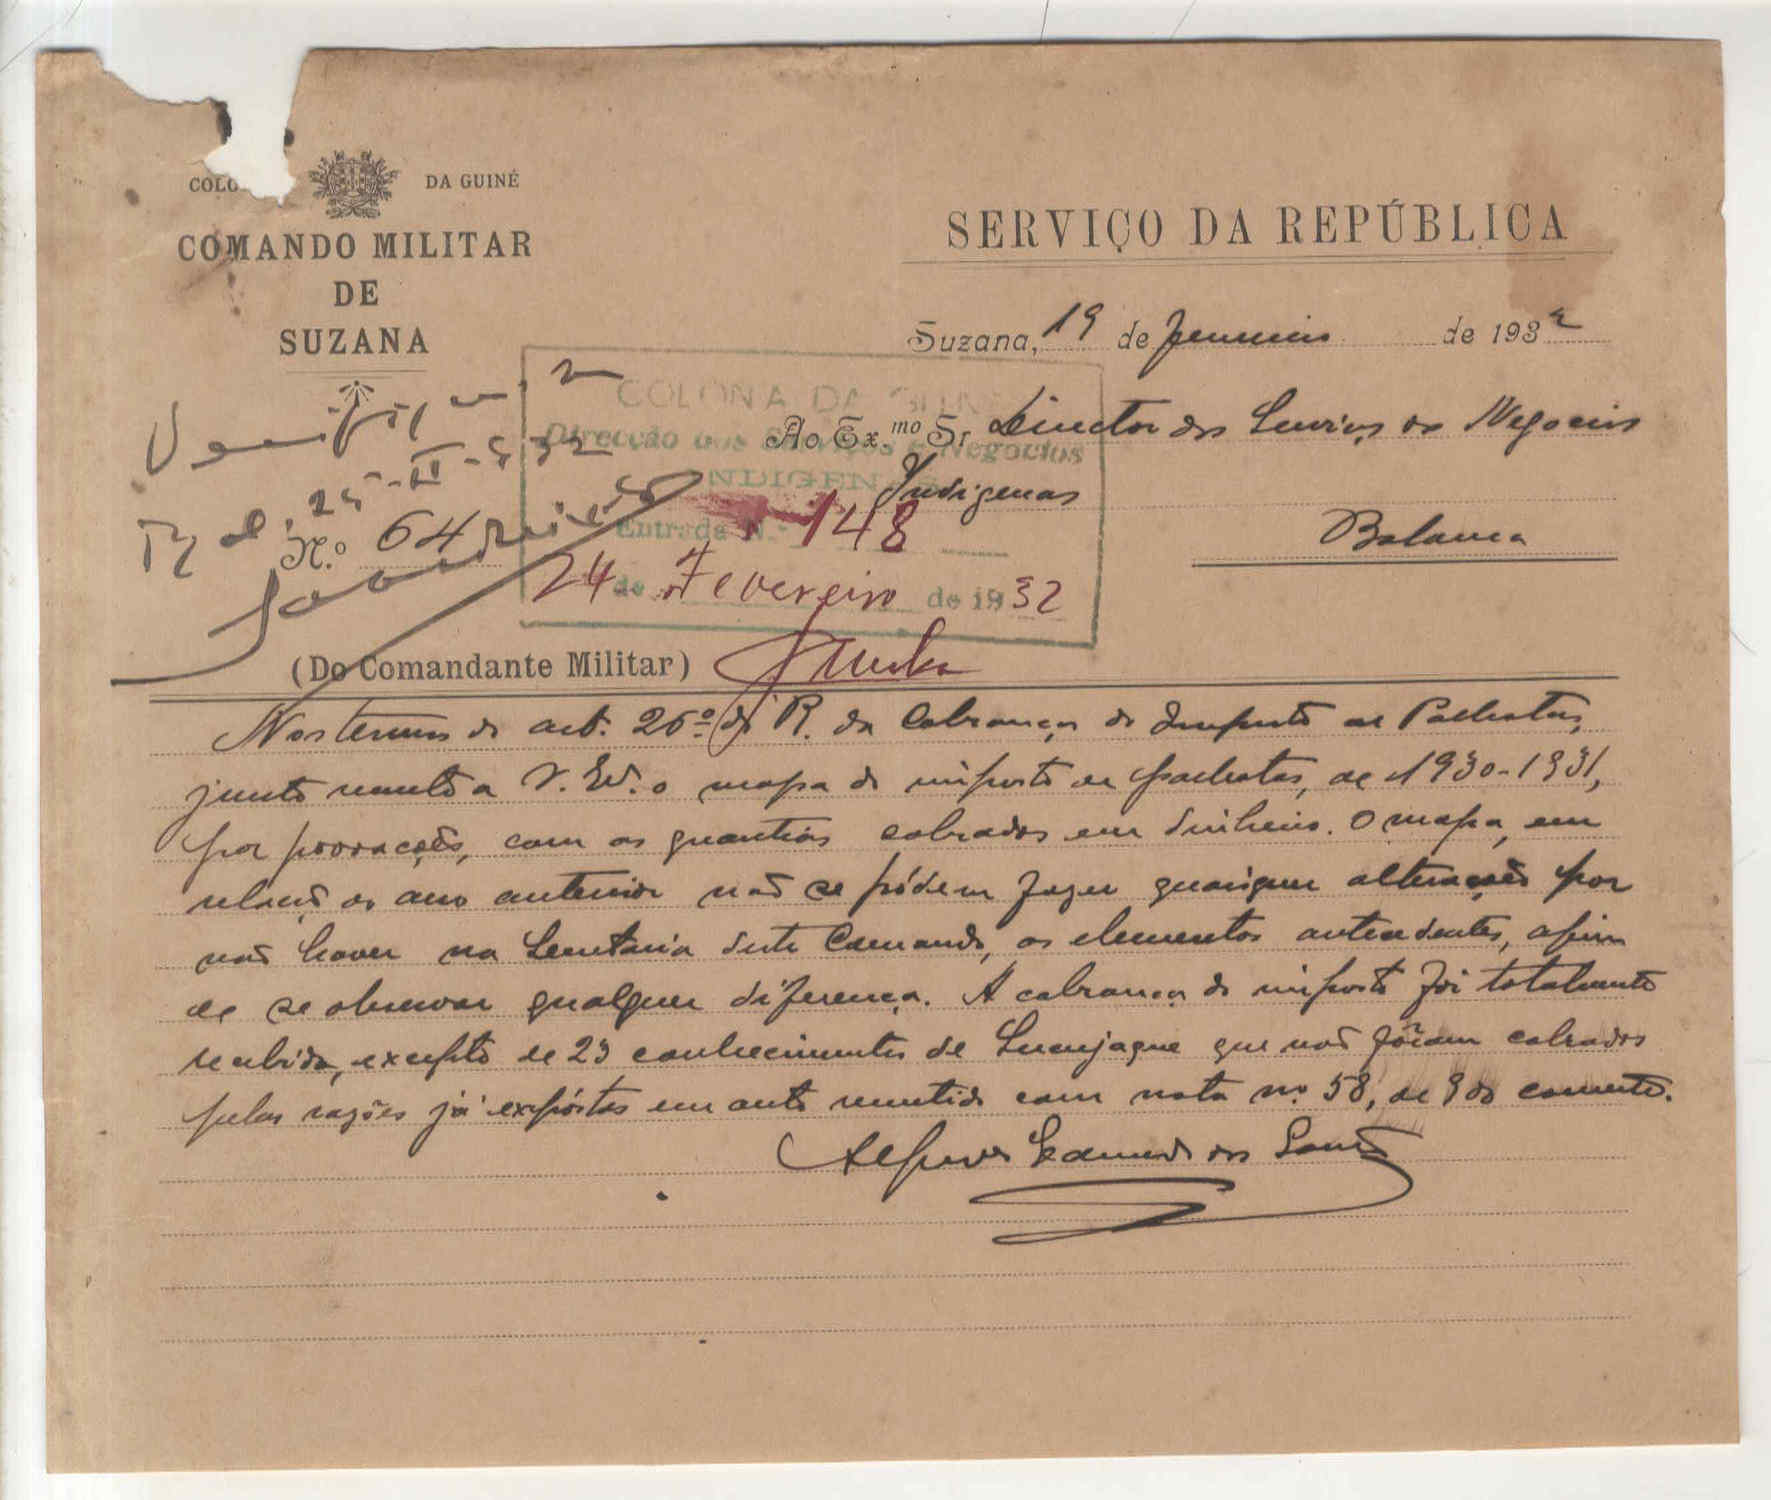 COLO DA GUINÉ
COMANDO MILITAR
DE
SUZANA
SERVIÇO DA REPÚBLICA
Suzana, 19 de de 1932
COLONIA DA GUINÉ
Ao Ex.mo Sr Director dos Serviços e Negocios
Direcção dos Serviços e Negocios
INDIGENAS
Indigenas
Entrada N.º 148
Bolama
24 de Fevereiro de 1932
N.º 64
(Do Comandante Militar)
Nos termos do art. 26º do R. da Cobrança do Imposto de Palhotas,
junto remeto a V. Exª. o mapa do imposto de palhotas, de 1930-1931,
por povoações, com as quantias cobradas em dinheiro. O mapa, em
relação ao ano anterior não se pódem fazer quaisquer alterações por
não haver na Secretaria deste Comando, os elementos antecedentes, afim
de se observar qualquer diferença. A cobrança do imposto foi totalmente
recebida, excepto de 23 conhecimentos de que não fôram cobrados
pelas razões já expóstas em auto remetido com nota nº 58, de 9 do corrente.